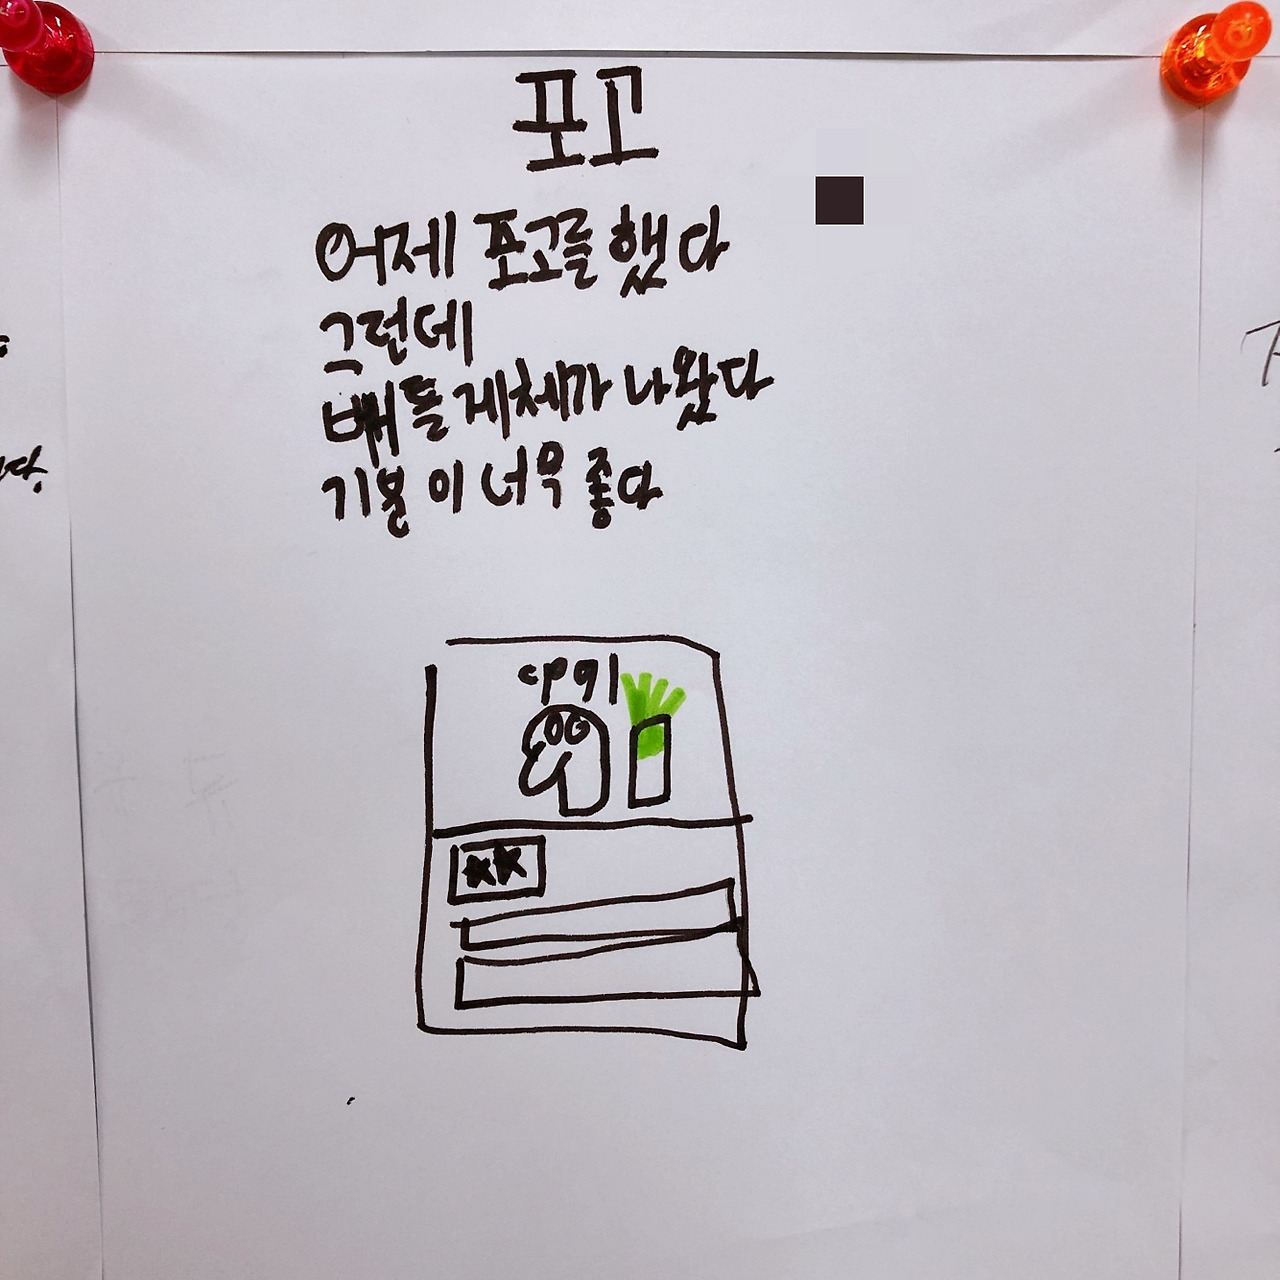 포고
어제 포고를 했다
그런데
배틀 게체가 나왔다
기분이 너무 좋다
cp91
다.